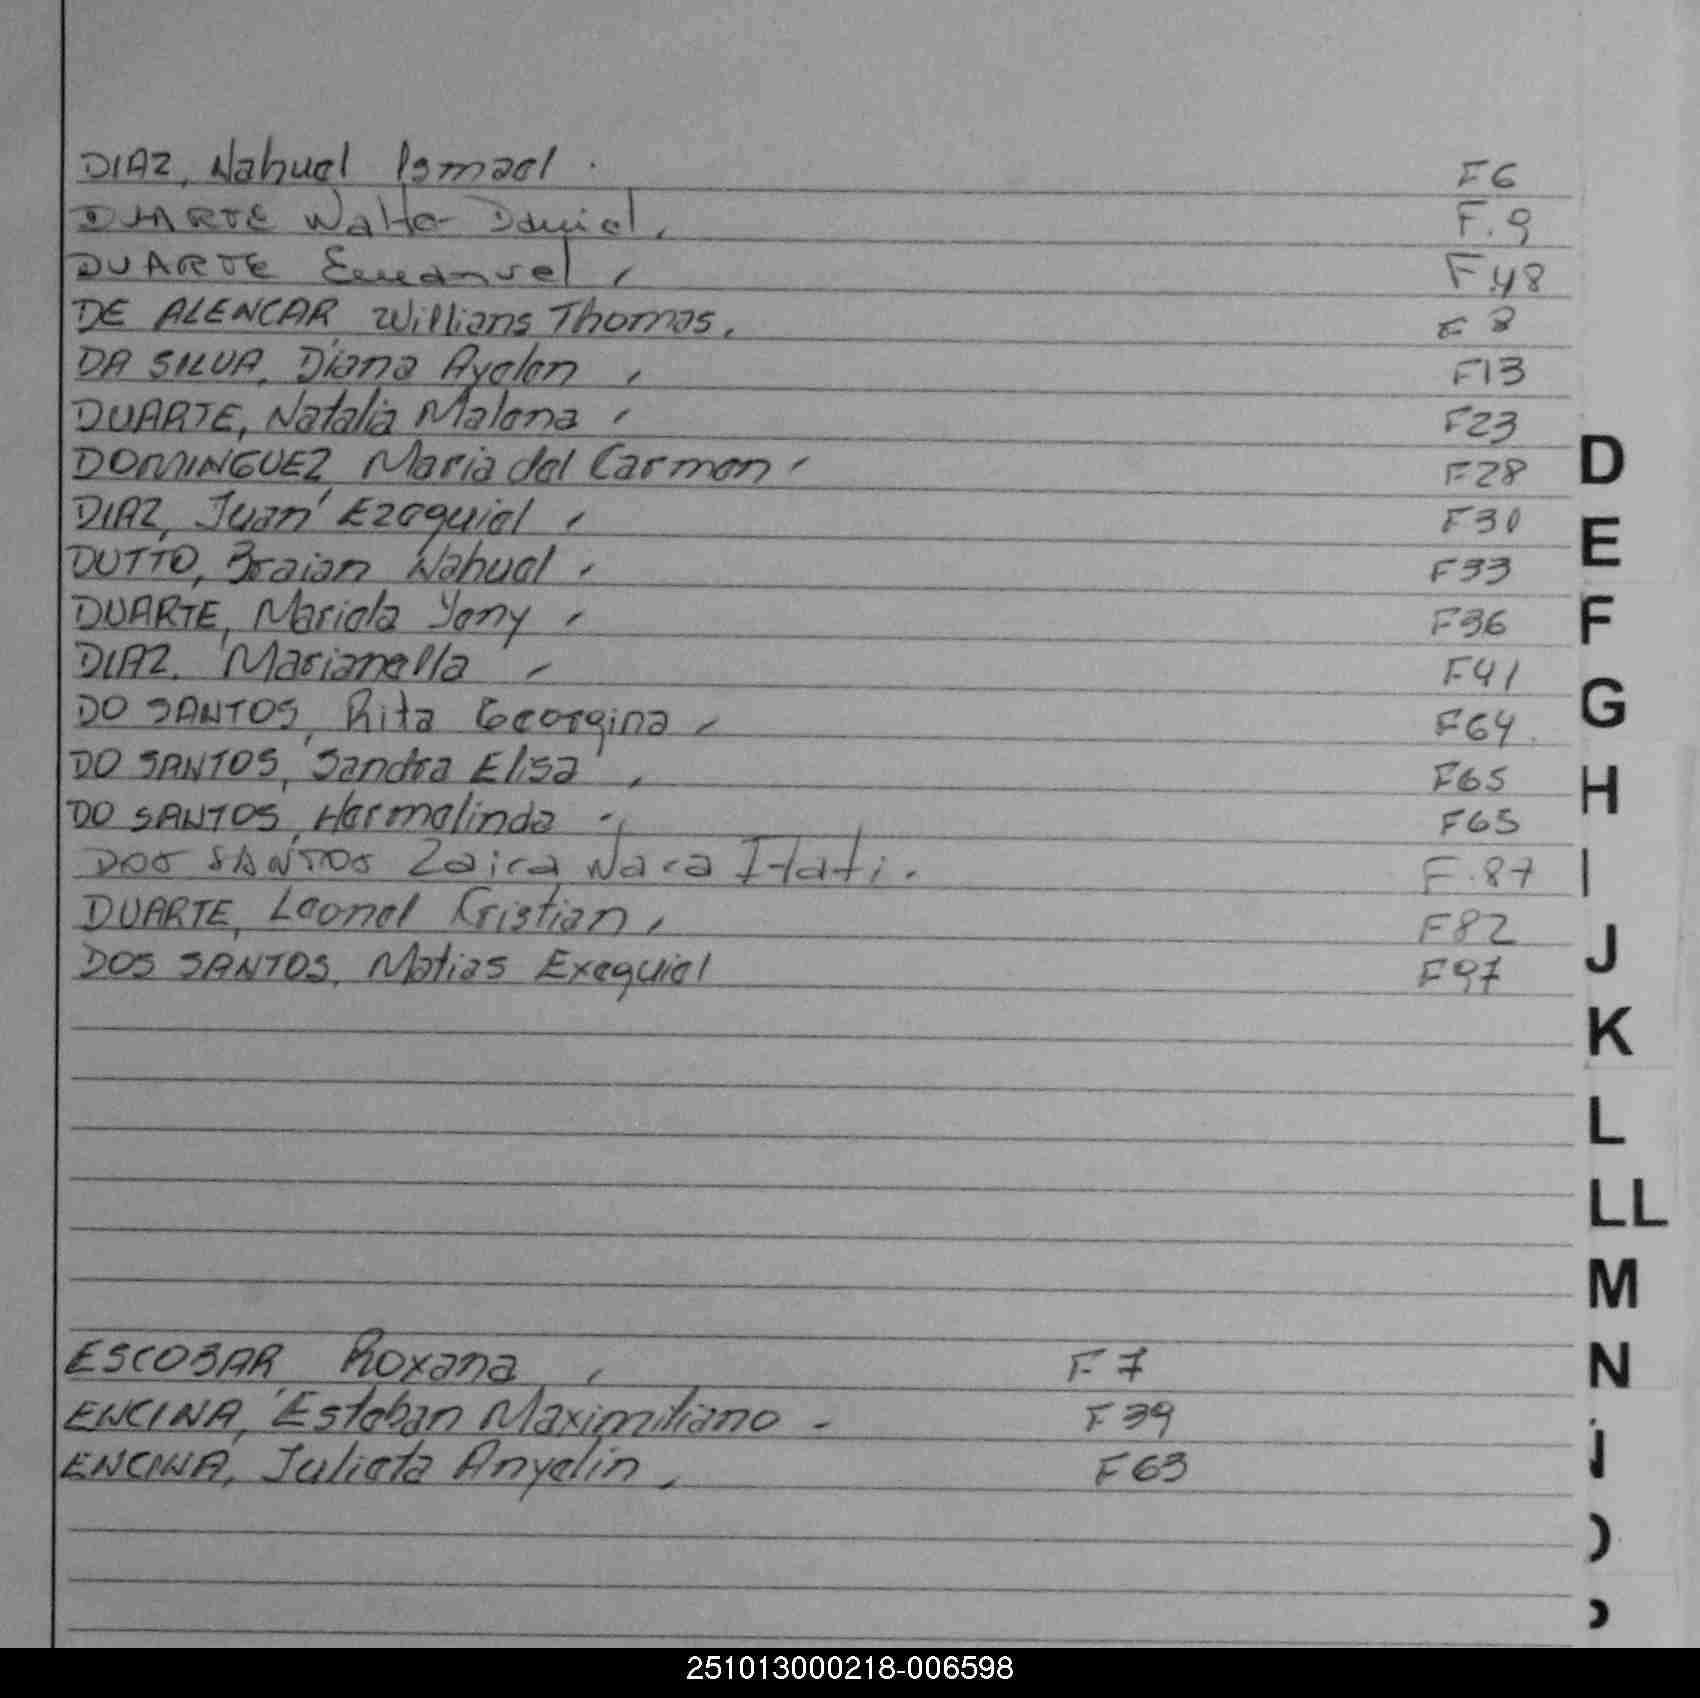 DIAZ, Nahuel Ismael . F6
DUARTE Walter Daniel, F.9
DUARTE Emanuel , F.48
DE ALENCAR Willians Thomas, F 8
DA SILVA, Diana Ayelen , F13
DUARTE, Natalia Malena , F23
DOMINGUEZ Maria del Carmen , F28
DIAZ, Juan Ezequiel , F30
DUTTO, Braian Nahuel , F33
DUARTE, Mariela Yeny , F36
DIAZ, Marianella - F41
DO SANTOS, Rita Georgina , F64
DO SANTOS, Sandra Elisa , F65
DO SANTOS, Hermelinda -, F65
DOS SANTOS Zaira Nara Itati . F.87
DUARTE, Leonel Cristian, F82
DOS SANTOS, Matias Exequiel F97
ESCOBAR Roxana , F7
ENCINA, Esteban Maximiliano - F39
ENCINA, Julieta Anyelin , F63
D
E
F
G
H
I
J
K
L
LL
M
N
251013000218-006598